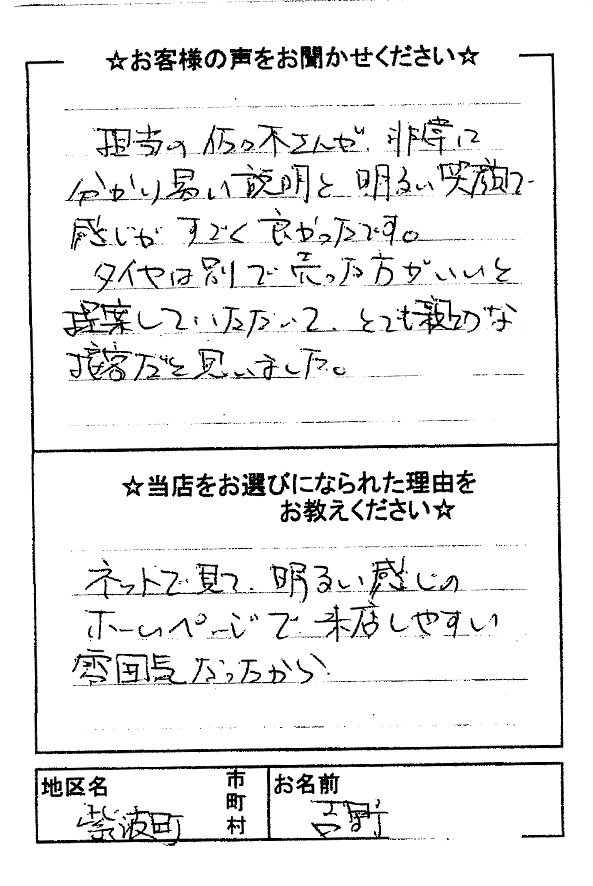 ☆お客様の声をお聞かせください☆
担当の佐々木さんが、非常に
分かり易い説明と明るい笑顔で
感じがすごく良かったです。
タイヤは別で売った方がいいと
提案していただいて、とても親切な
接客だと思いました。
☆当店をお選びになられた理由を
お教えください☆
ネットで見て、明るい感じの
ホームページで来店しやすい
雰囲気だったから
地区名
紫波町
市
町
村
お名前
吉野